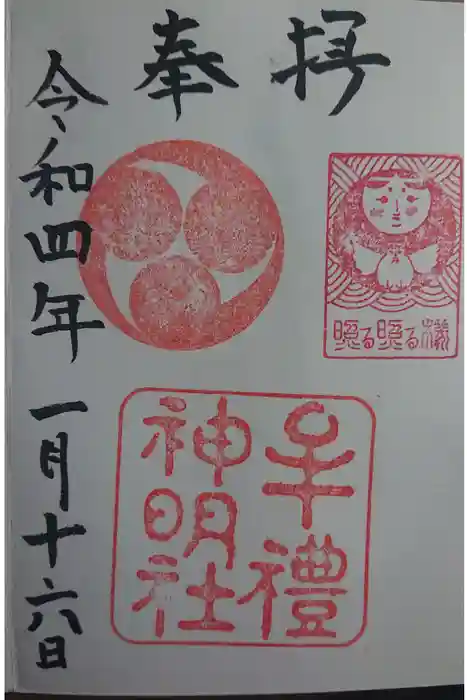 奉拝
照る照る様
牟禮
神明社
令和四年 一月十六日